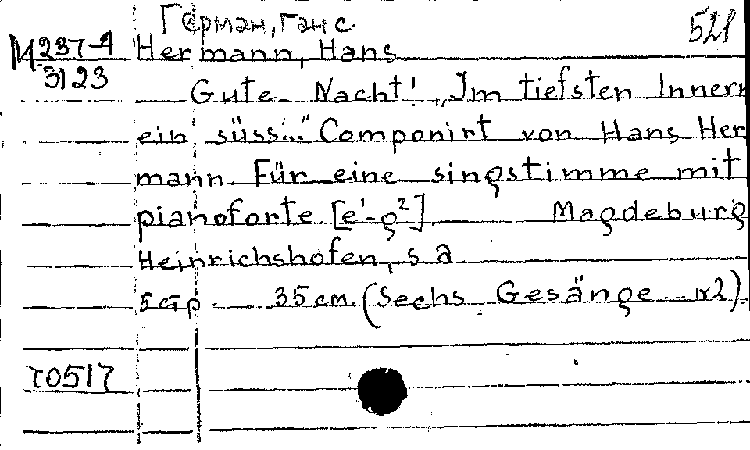 Герман, Ганс. 521
М 237-4 Hermann, Hans
3123
Gute Nacht! „Im tiefsten Innern
ein süss..." Componirt von Hans Her
mann. Für eine singstimme mit
pianoforte [e¹-g²] Magdeburg
Heinrichshofen, s a
5 стр. 35 cm. (Sechs Gesänge №2).
70517